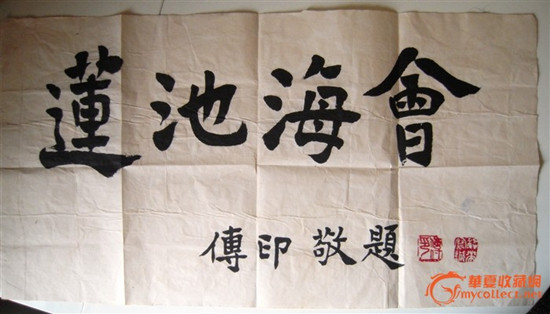 蓮池海會
傳印敬題
華夏收藏網
mycollect.net